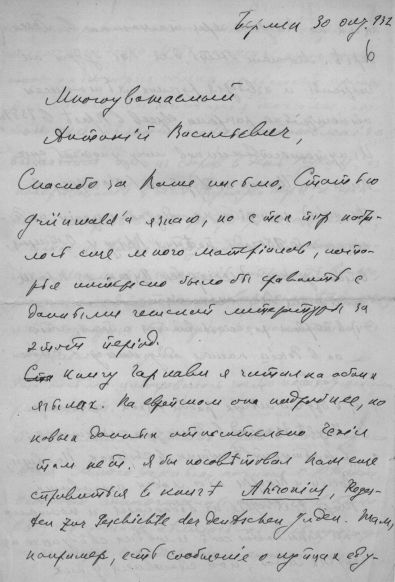 Берлин 30 окт. 932
6
Многоуважаемый
Антоній Васильевич,
Спасибо за Ваше письмо. Статью
Grünwald'а я знаю, но с тех пор набра-
лось еще много матеріалов, кото-
рые интересно было бы сравнить с
данными чешской литературы за
этот період.
Книгу Гаркави я читил на обоих
языках. На еврейском она подробнее, но
новых данных относительно Чехіи
там нет. Я бы посовѣтовал Вам еще
справиться в книгѣ Aronius, Reges-
ten zur Geschichte der deutschen Juden. Там,
например, есть сообщеніе о купцах